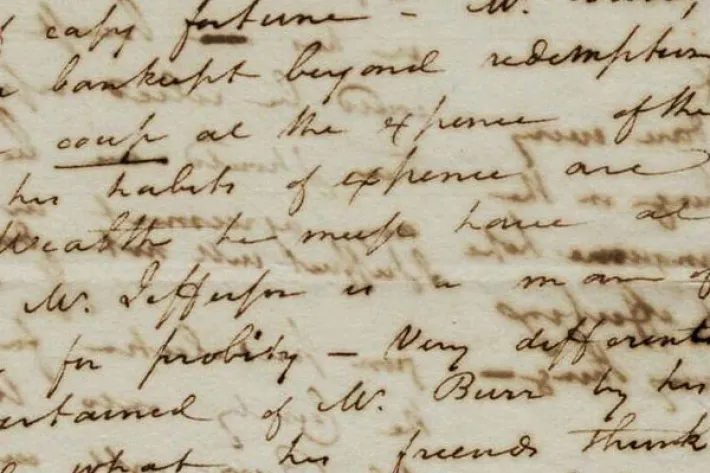 easy fortune – Mr.
bankrupt beyond redemption
coup at the expence of the
his habits of expence are
Wealth he must have at
Mr. Jefferson is a man of
for probity – Very different
of Mr. Burr by his
what his friends think